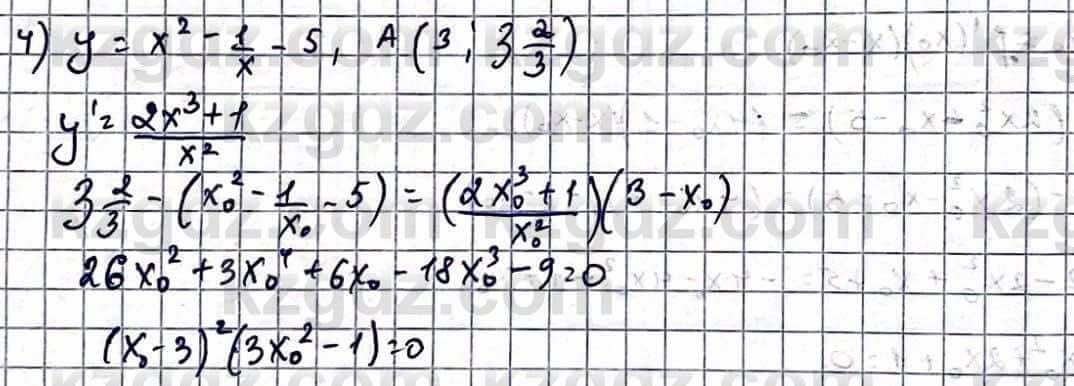 4) y = x² - 1/x - 5, A(3; 3 2/3)
y' = (2x³ + 1)/x²
3 2/3 - (x₀² - 1/x₀ - 5) = ((2x₀³ + 1)/x₀²)(3 - x₀)
26x₀² + 3x₀⁴ + 6x₀ - 18x₀³ - 9 = 0
(x₀ - 3)²(3x₀² - 1) = 0
kzgdz.com